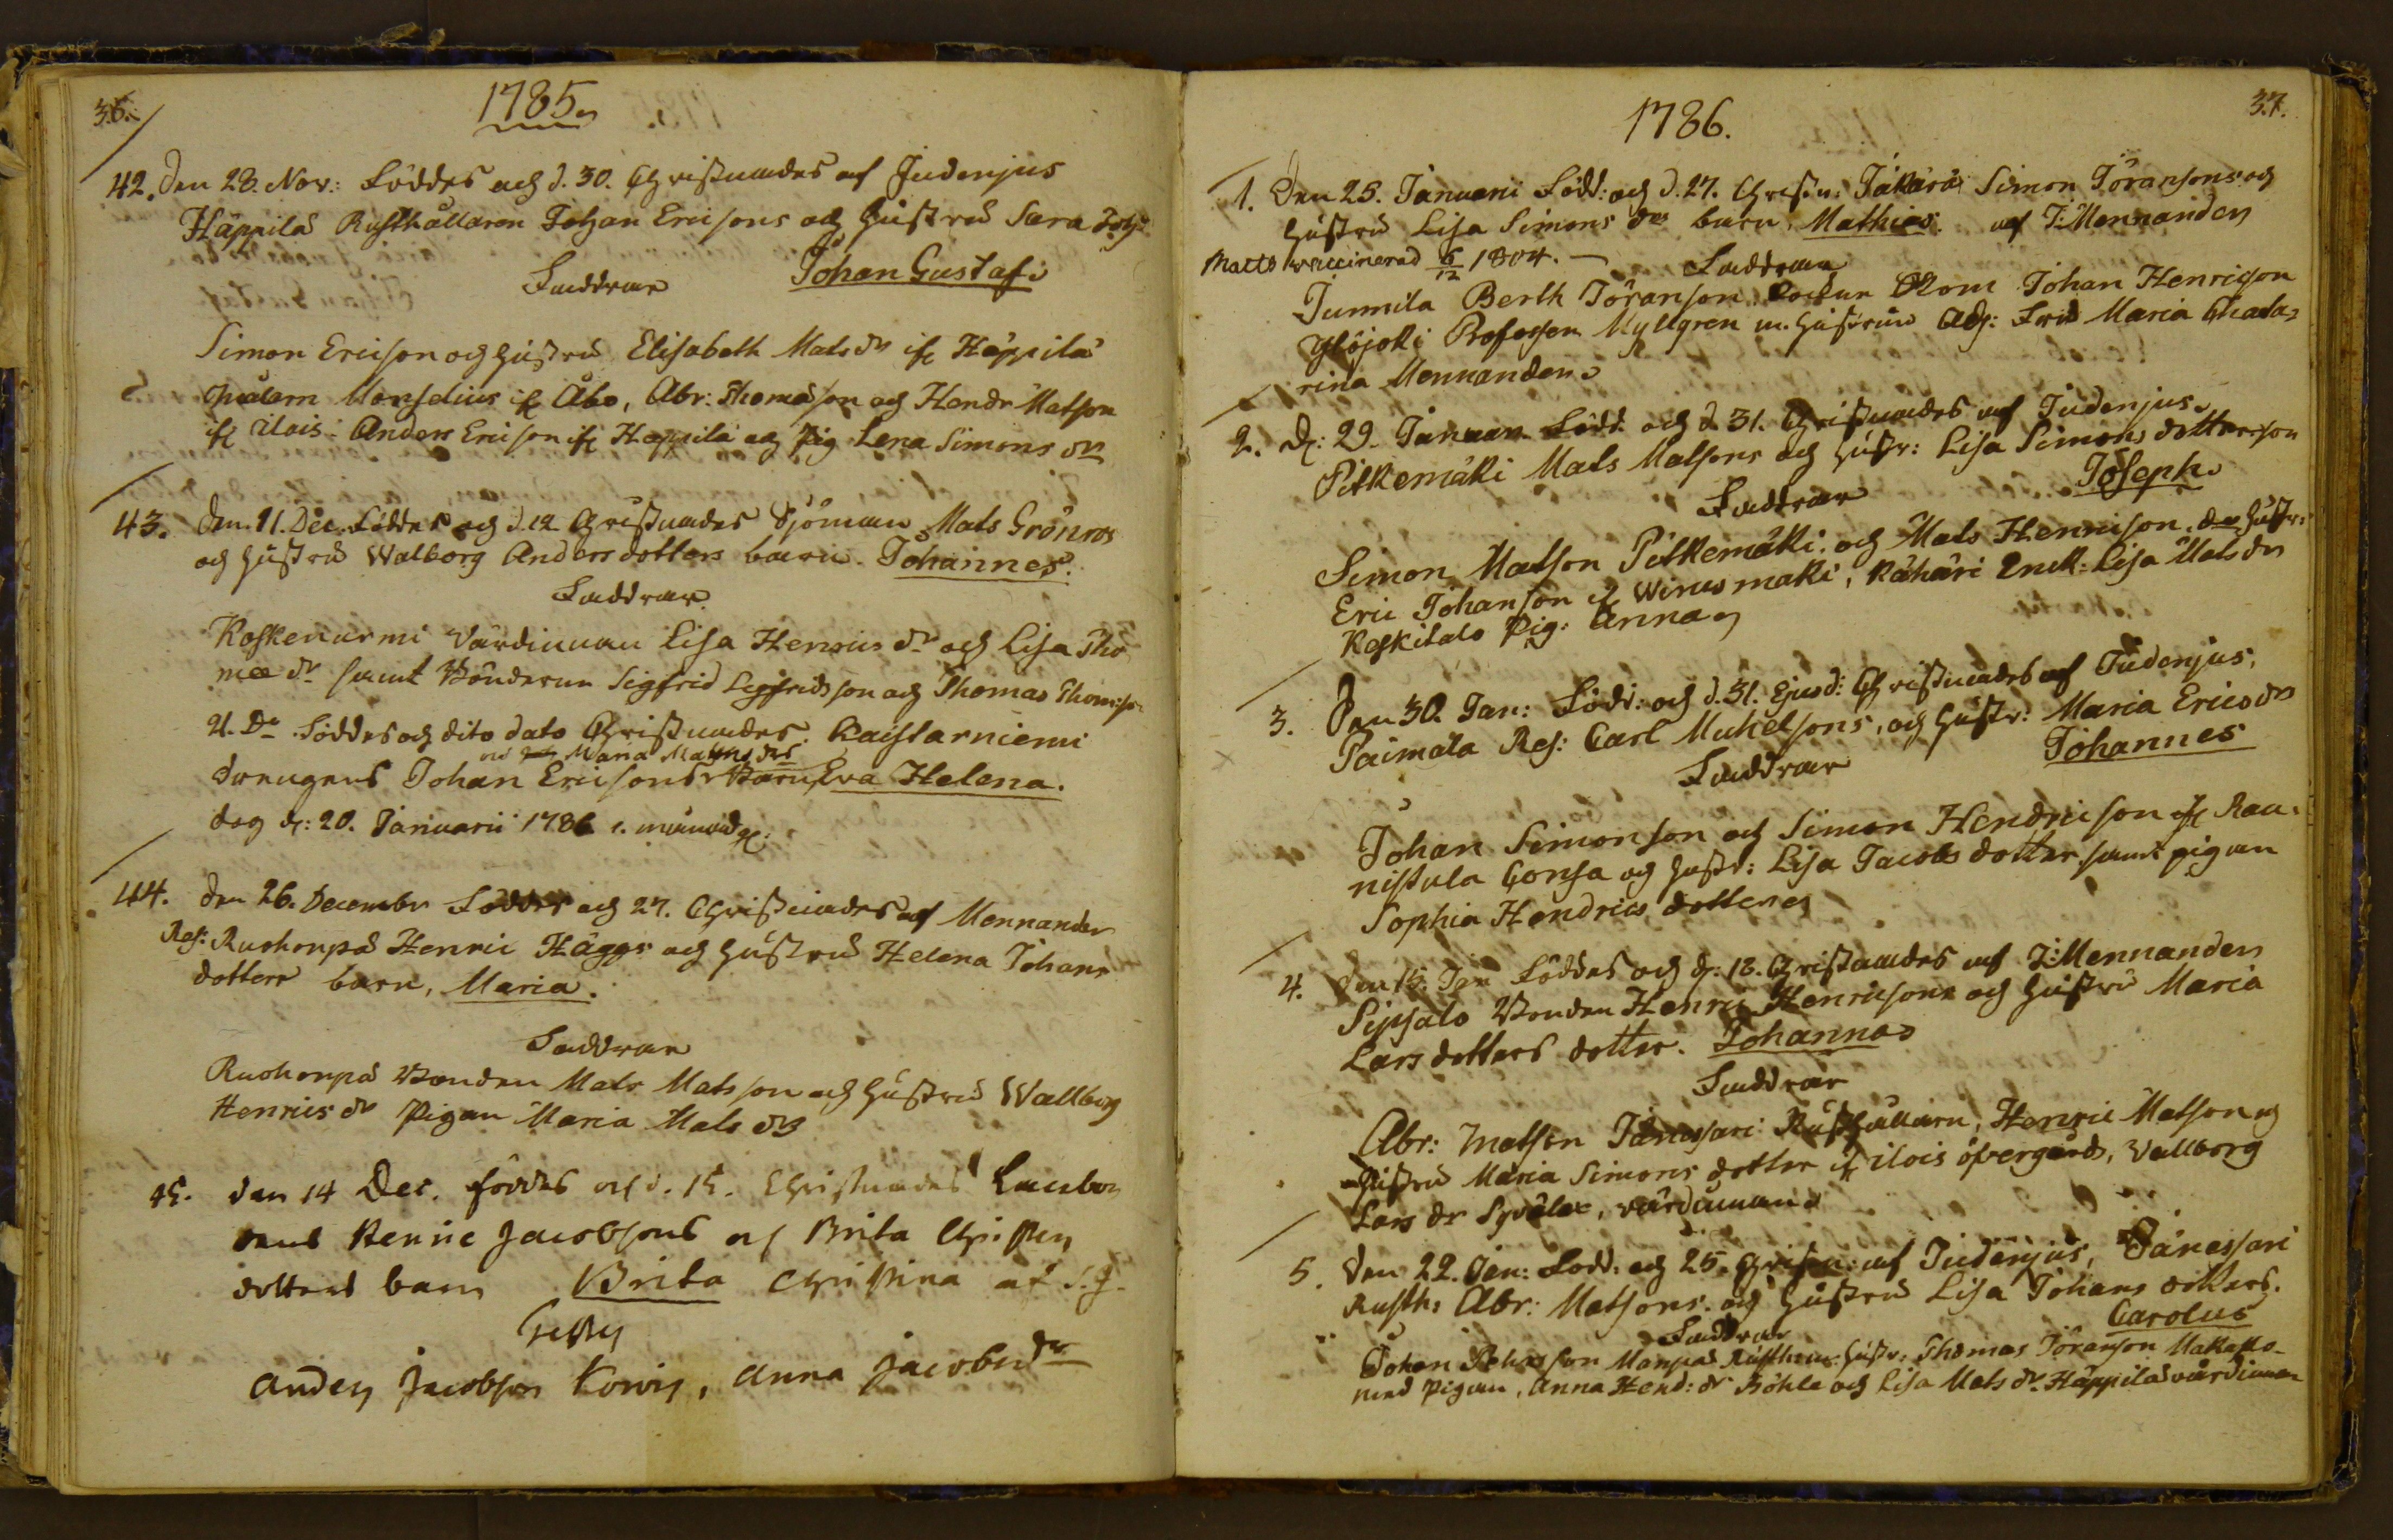 36.
1785.
42. Den 28. Nov: Föddes och d. 30. Christnades af Judenjus
Häppilä Rusthållaren Johan Ericsons och hustru Sara Joh:
Faddrar Johan Gustaf.
Simon Ericson och hustru Elisabeth Mats dr ifr Häppilä
Monselius ifr Åbo, Abr: Thomasson och Hendr Matson
ifr ilois. Anders Ericson ifr Häppilä och Pig Lena Simons dr
43. Den 11. Dec. Föddes och d. 12 Christnades Sjöman Mats Grönros
och hustru Walborg Andersdotters barn. Johannes.
Faddrar.
Koskenurmi värdinnan Lisa Henrics dr och Lisa Tho
mæ dr samt Bönderne Sigfrid Sigfridsson och Thomas Thomæson
U. Dr Föddes och dito dato Christnades. Kaistarniemi
Maria Matts drs
drengens Johan Ericsons Barn Eva Helena.
dog d: 20. Januarii 1786 1. månad
44. den 26. Decembr Föddes och 27. Christnades af Mennander
Ruohonpä Henric Häggs och hustru Helena Johans
dotters barn, Maria.
Faddrar
Ruohonpä Bonden Mats Matsson och hustru Wallborg
Henrics dr Pigan Maria Mats dr
45. den 14 Dec. föddes och d. 15. Christnades
Henric Jacobsons och Brita Christers
dotters barn Brita Christina af J. J.
Testes
Anders Jacobson Anna Jacobsdr
37.
1786.
1. Den 25. Januarii Född: och d. 27. Christn: Jäkärä Simon Jöransons och
hustru Lisa Simons drs barn, Mathias. af J: Mennander
Matts vaccinerad 6/12 1804. Faddrar
Junnila Berth Jöranson Johan Henricson
Ylöjoki Professor Myllgren m. hustru Maria Chatha-
rina Mennander.
2. d: 29. Januar. Född och d. 31. Christnades af Judenjus.
Pitkemäki Mats Matsons och hustr: Lisa Simons dotters son
Faddrar Joseph.
Simon Matson Pitkemäki. och Mats Henricson. hustr:
Eric Johanson ifr Wirusmäki, Kähäri Enck: Lisa Mats dr
Koskitalo Pig: Anna
3. Den 30. Jan: Född: och d. 31. Ejusd: Christnades af Judenjus,
Paimala Carl Michelsons, och hustr: Maria Erics dr
Faddrar Johannes
Johan Simonson och Simon Hendricson ifr Rau-
nistula Gonsa och hustr: Lisa Jacobs dotter samt pigan
Sophia Hendrics dotter
4. Den 15. Jan Föddes och d: 18. Christnades af J: Mennander
Sipsalo Bonden Henric Henricsons och hustru Maria
Lars dotters dotter. Johanna
Faddrar
Abr: Matson Jänessari Rusthållarn, Henric Matson och
hustru Maria Simons dotter ifr ilois öfvergård, Vallborg
Lars dr värdinnan
5. Den 22. Jan: Född: och 25. Christn: af Judenjus, Jänessari
Rusth: Abr: Matsons. och hustru Lisa Johans dotters.
Faddrar Carolus
Johan Johansson hustr: Thomas Jöranson
med pigan, Anna Hend: dr Böhle och Lisa Mats dr. Häppilä värdinnan